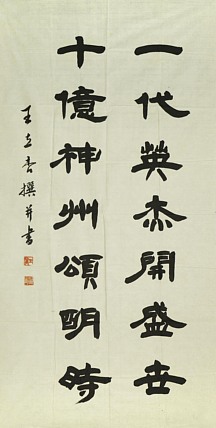 一代英杰開盛世
十億神州頌明時
王立香撰并書